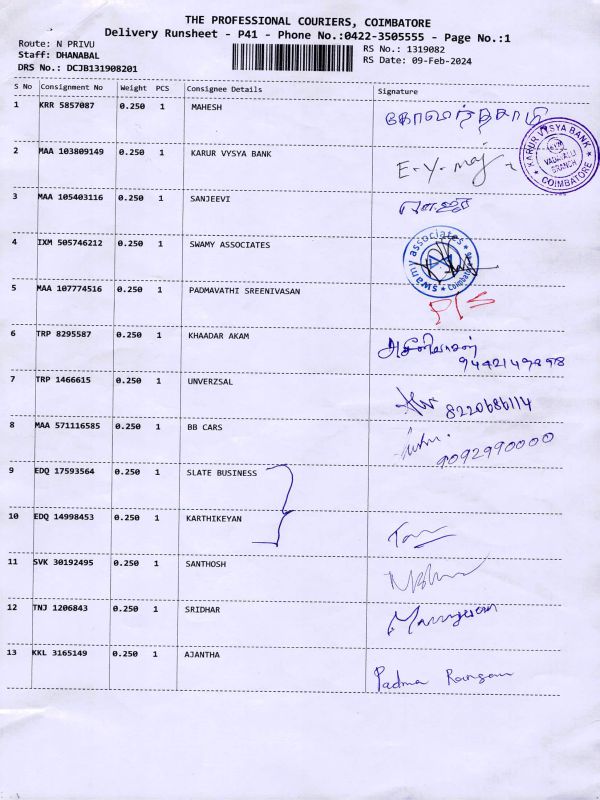 THE PROFESSIONAL COURIERS, COIMBATORE
Delivery Runsheet - P41 - Phone No.:0422-3505555 - Page No.:1
Route: N PRIVU
RS No.: 1319082
Staff: DHANABAL
RS Date: 09-Feb-2024
DRS No.: DCJB131908201
S No Consignment No Weight PCS Consignee Details Signature
1 KRR 5857087 0.250 1 MAHESH
2 MAA 103809149 0.250 1 KARUR VYSYA BANK
KARUR VYSYA BANK
VADAVALLI
BRANCH
COIMBATORE
3 MAA 105403116 0.250 1 SANJEEVI
4 IXM 505746212 0.250 1 SWAMY ASSOCIATES
swamy associates
Coimbatore
5 MAA 107774516 0.250 1 PADMAVATHI SREENIVASAN
6 TRP 8295587 0.250 1 KHAADAR AKAM
7 TRP 1466615 0.250 1 UNVERZSAL 8220686114
8 MAA 571116585 0.250 1 BB CARS
9092990000
9 EDQ 17593564 0.250 1 SLATE BUSINESS
10 EDQ 14998453 0.250 1 KARTHIKEYAN
11 SVK 30192495 0.250 1 SANTHOSH
12 TNJ 1206843 0.250 1 SRIDHAR
13 KKL 3165149 0.250 1 AJANTHA
Padma Rangan